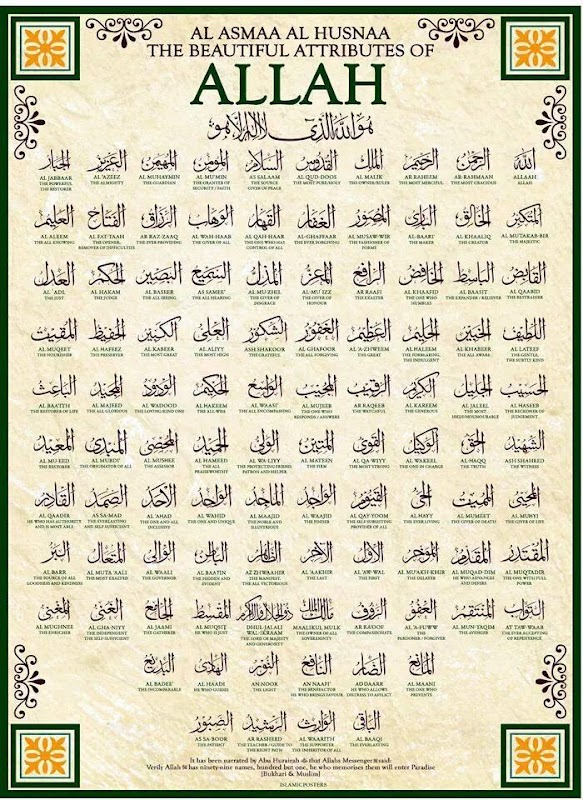 AL ASMAA AL HUSNAA
THE BEAUTIFUL ATTRIBUTES OF
ALLAH
هو الله الذي لا اله الا هو
الله
ALLAAH
ALLAH
الرحمن
AR-RAHMAAN
THE MOST GRACIOUS
الرحيم
AR RAHEEM
THE MOST MERCIFUL
الملك
AL MALIK
THE OWNER/RULER
القدوس
AL QUD-DOOS
THE MOST PURE/HOLY
السلام
AS SALAAM
THE SOURCE
GIVER OF PEACE
المؤمن
AL MU'MIN
THE GRANTER OF
SECURITY / FAITH
المهيمن
AL MUHAYMIN
THE GUARDIAN
العزيز
AL 'AZEEZ
THE ALMIGHTY
الجبار
AL JABBAAR
THE POWERFUL
THE RESTORER
المتكبر
AL MUTAKAB-BIR
THE MAJESTIC
الخالق
AL KHAALIQ
THE CREATOR
البارئ
AL-BAARI'
THE MAKER
المصور
AL MUSAW-WIR
THE FASHIONER OF
FORMS
الغفار
AL-GHAFFAAR
THE EVER FORGIVING
القهار
AL QAH-HAAR
THE ONE WHO HAS
CONTROL OF ALL
الوهاب
AL WAH-HAAB
THE GIVER OF ALL
الرزاق
AR-RAZ-ZAAQ
THE EVER PROVIDING
الفتاح
AL FAT-TAAH
THE OPENER,
REMOVER OF DIFFICULTIES
العليم
AL ALEEM
THE ALL KNOWING
القابض
AL QAABID
THE RESTRAINER
الباسط
AL BAASIT
THE EXPANDER / RELIEVER
الخافض
AL KHAAFID
THE ONE WHO
HUMBLES
الرافع
AR RAAFI
THE EXALTER
المعز
AL-MU'IZZ
THE GIVER OF
HONOUR
المذل
AL-MU-ZHIL
THE GIVER OF
DISGRACE
السميع
AS SAMEE'
THE ALL HEARING
البصير
AL BASEER
THE ALL SEEING
الحكم
AL HAKAM
THE JUDGE
العدل
AL 'ADL
THE JUST
اللطيف
AL LATEEF
THE GENTLE,
THE SUBTLY KIND
الخبير
AL KHABEER
THE ALL AWARE
الحليم
AL HALEEM
THE FORBEARING,
THE INDULGENT
العظيم
AL 'A-ZHWEEM
THE GREAT
الغفور
AL GHAFOOR
THE ALL FORGIVING
الشكور
ASH SHAKOOR
THE GRATEFUL
العلي
AL ALIYY
THE MOST HIGH
الكبير
AL KABEER
THE MOST GREAT
الحفيظ
AL HAFEEZ
THE PRESERVER
المقيت
AL MUQEET
THE NOURISHER
الحسيب
AL HASEEB
THE RECKONER OF
JUDGEMENT
الجليل
AL JALEEL
THE MOST
HIGH/HONOURABLE
الكريم
AL KAREEM
THE GENEROUS
الرقيب
AR RAQEEB
THE WATCHFUL
المجيب
AL MUJEEB
THE ONE WHO
RESPONDS / ANSWERS
الواسع
AL WAASI'
THE ALL ENCOMPASSING
الحكيم
AL HAKEEM
THE ALL WISE
الودود
AL WADOOD
THE LOVING/KIND ONE
المجيد
AL MAJEED
THE ALL GLORIOUS
الباعث
AL BAAITH
THE RESTORER OF LIFE
الشهيد
ASH-SHAHEED
THE WITNESS
الحق
AL-HAQQ
THE TRUTH
الوكيل
AL WAKEEL
THE ONE IN CHARGE
القوي
AL QA-WIYY
THE MOST STRONG
المتين
AL MATEEN
THE FIRM
الولي
AL WA-LIYY
THE PROTECTING FRIEND,
PATRON AND HELPER
الحميد
AL HAMEED
THE ALL
PRAISEWORTHY
المحصي
AL MUSHEE
THE ASSESSOR
المبدئ
AL MUBDI'
THE ORIGINATOR OF ALL
المعيد
AL MU-EED
THE RESTORER
المحيي
AL MUHYI
THE GIVER OF LIFE
المميت
AL MUMEET
THE GIVER OF DEATH
الحي
AL HAYY
THE EVER LIVING
القيوم
AL QAY YOOM
THE SELF SUBSISTING
PROVIDER OF ALL
الواجد
AL WAAJID
THE FINDER
الماجد
AL MAAJID
THE NOBLE AND
ILLUSTRIOUS
الواحد
AL WAHID
THE ONE AND UNIQUE
الاحد
AL 'AHAD
THE ONE AND ALL
INCLUSIVE
الصمد
AS SA-MAD
THE EVERLASTING
AND SELF SUFFICIENT
القادر
AL QAADER
HE WHO HAS AUTHORITY
AND IS MOST ABLE
المقتدر
AL MUQTADIR
THE ONE WITH FULL
POWER
المقدم
AL MUQAD-DIM
HE WHO ADVANCES
AND DEFERS
المؤخر
AL MU'AKH-KHIR
THE DELAYER
الاول
AL 'AW-WAL
THE FIRST
الآخر
AL 'AAKHER
THE LAST
الظاهر
AZ ZHWAAHIR
THE MANIFEST,
THE ALL VICTORIOUS
الباطن
AL BAATIN
THE HIDDEN AND
EVIDENT
الوالي
AL WAALI
THE GOVERNOR
المتعال
AL MUTA 'AALI
THE MOST EXALTED
البر
AL BARR
THE SOURCE OF ALL
GOODNESS AND KINDNESS
التواب
AT TAW-WAAB
THE EVER ACCEPTING
OF REPENTENCE
المنتقم
AL MUN-TAQIM
THE AVENGER
العفو
AL 'A-FUWW
THE
PARDONER / FORGIVER
الرؤوف
AR RA'OOF
THE COMPASSIONATE
مالك الملك
MAALIKUL MULK
THE OWNER OF ALL
SOVEREIGNITY
ذو الجلال والاكرام
DHUL-JALALI
WAL-'IKRAAM
THE LORD OF MAJESTY
AND GENEROSITY
المقسط
AL MUQSIT
HE IS JUST
الجامع
AL JAAMI
THE GATHERER
الغني
AL GHA-NIYY
THE INDEPENDENT
THE SELF-SUFFICIENT
المغني
AL MUGHNEE
THE ENRICHER
المانع
AL MAANI
THE ONE WHO
PREVENTS
الضار
AD DAARR
HE WHO ALLOWS
DISTRESS TO AFFLICT
النافع
AN NAAFI'
THE BENEFACTOR
HE WHO BRINGS FAVOUR
النور
AN NOOR
THE LIGHT
الهادي
AL HAADI
HE WHO GUIDES
البديع
AL BADEE'
THE INCOMPARABLE
الباقي
AL BAAQI
THE EVERLASTING
الوارث
AL WAARITH
THE SUPPORTER
THE INHERITOR OF ALL
الرشيد
AR RASHEED
THE TEACHER / GUIDE TO
THE RIGHT PATH
الصبور
AS SA-BOOR
THE PATIENT
It has been narrated by Abu Hurairah that Allahs Messenger ﷺ said:
Verily Allah has ninety-nine names, hundred but one, he who memorises them will enter Paradise
[Bukhari & Muslim]
ISLAMICPOSTERS